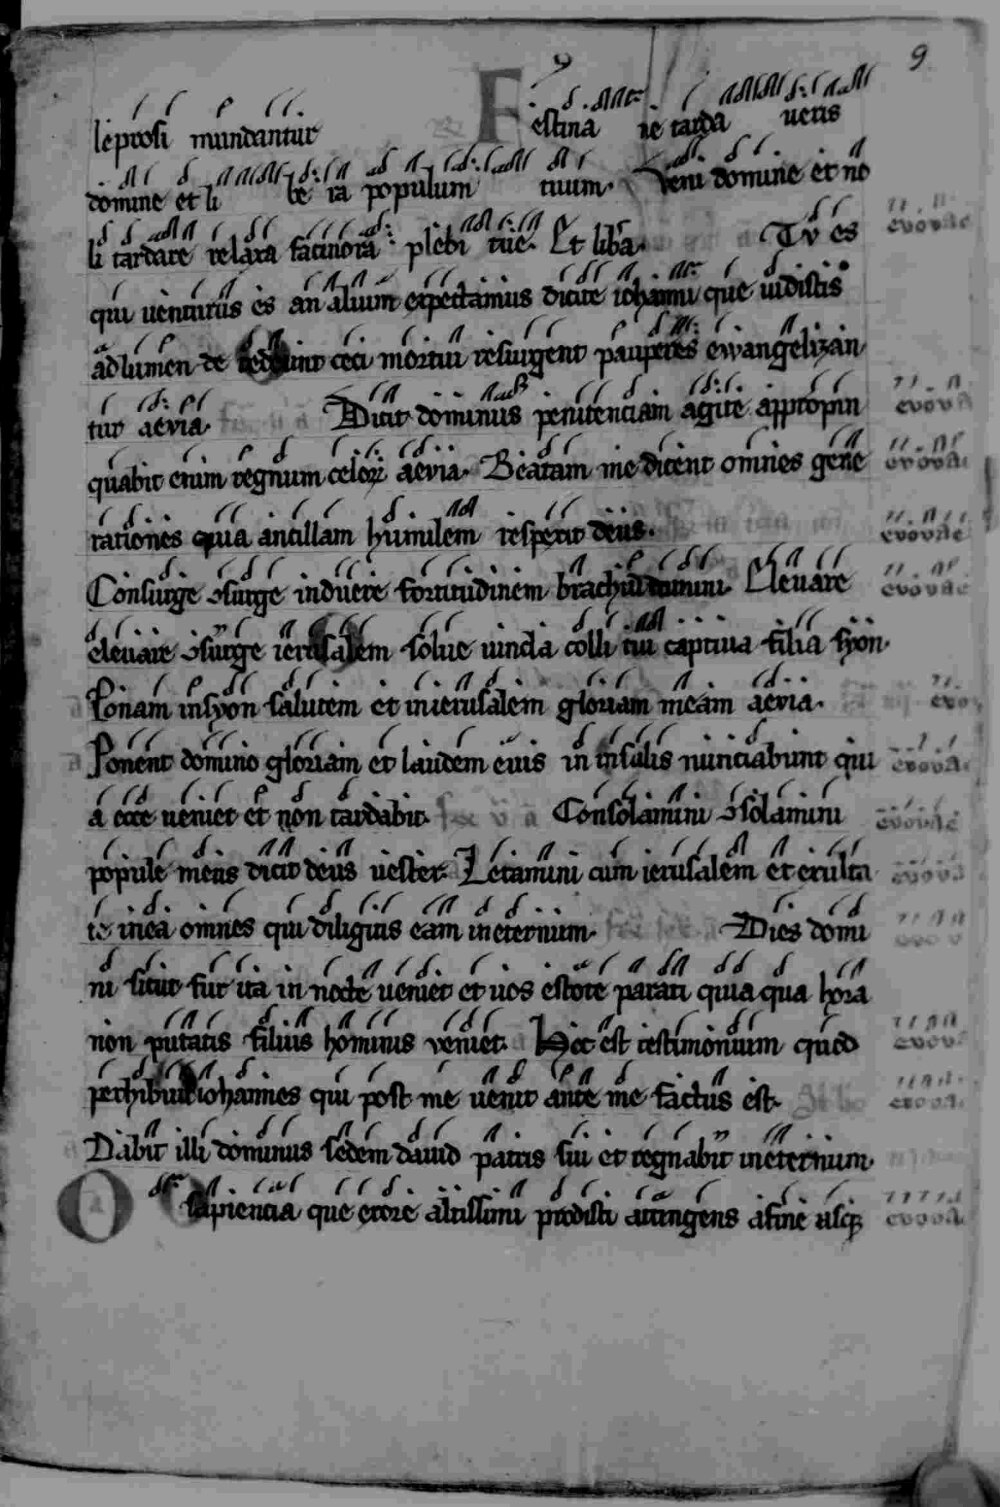 9
leprosi mundantur F estina ne tarda ueris
domine et li be ra populum tuum. Veni domine et no
li tardare relaxa facinora plebi tue. Et liba. Tu es
euouae
qui uenturus es an alium expectamus dicite iohanni que uidistis
ad lumen de ceci mortui resurgent pauperes ewangelizan
tur aevia. Dicit dominus penitenciam agite appropin
euoua
quabit enim regnum celorum aevia. Beatam me dicent omnes gene
euouae
rationes quia ancillam humilem respexit deus.
euouae
Consurge ɔsurge induere fortitudinem brachiu domini Eleuare
euouae
eleuare ɔsurge ierusalem solue uincla colli tui captiua filia syon.
Ponam in syon salutem et in ierusalem gloriam meam aevia.
euou
Ponent domino gloriam et laudem eius in insulis nunciabunt qui
euoua
a ecce ueniet et non tardabit. Consolamini ɔsolamini
euouae
popule meus dicit deus uester. Letamini cum ierusalem et exulta
euoua
te in ea omnes qui diligitis eam in eternum. Dies domi
ni sicut fur ita in nocte ueniet et uos estote parati quia qua hora
non putatis filius hominis veniet. Hoc est testimonium quod
euou
perhibuit iohannes qui post me uenit ante me factus est.
euoua
Dabit illi dominus sedem dauid patris sui et regnabit in eternum.
O sapiencia que ex ore altissimi prodisti attingens a fine usq;
euoua